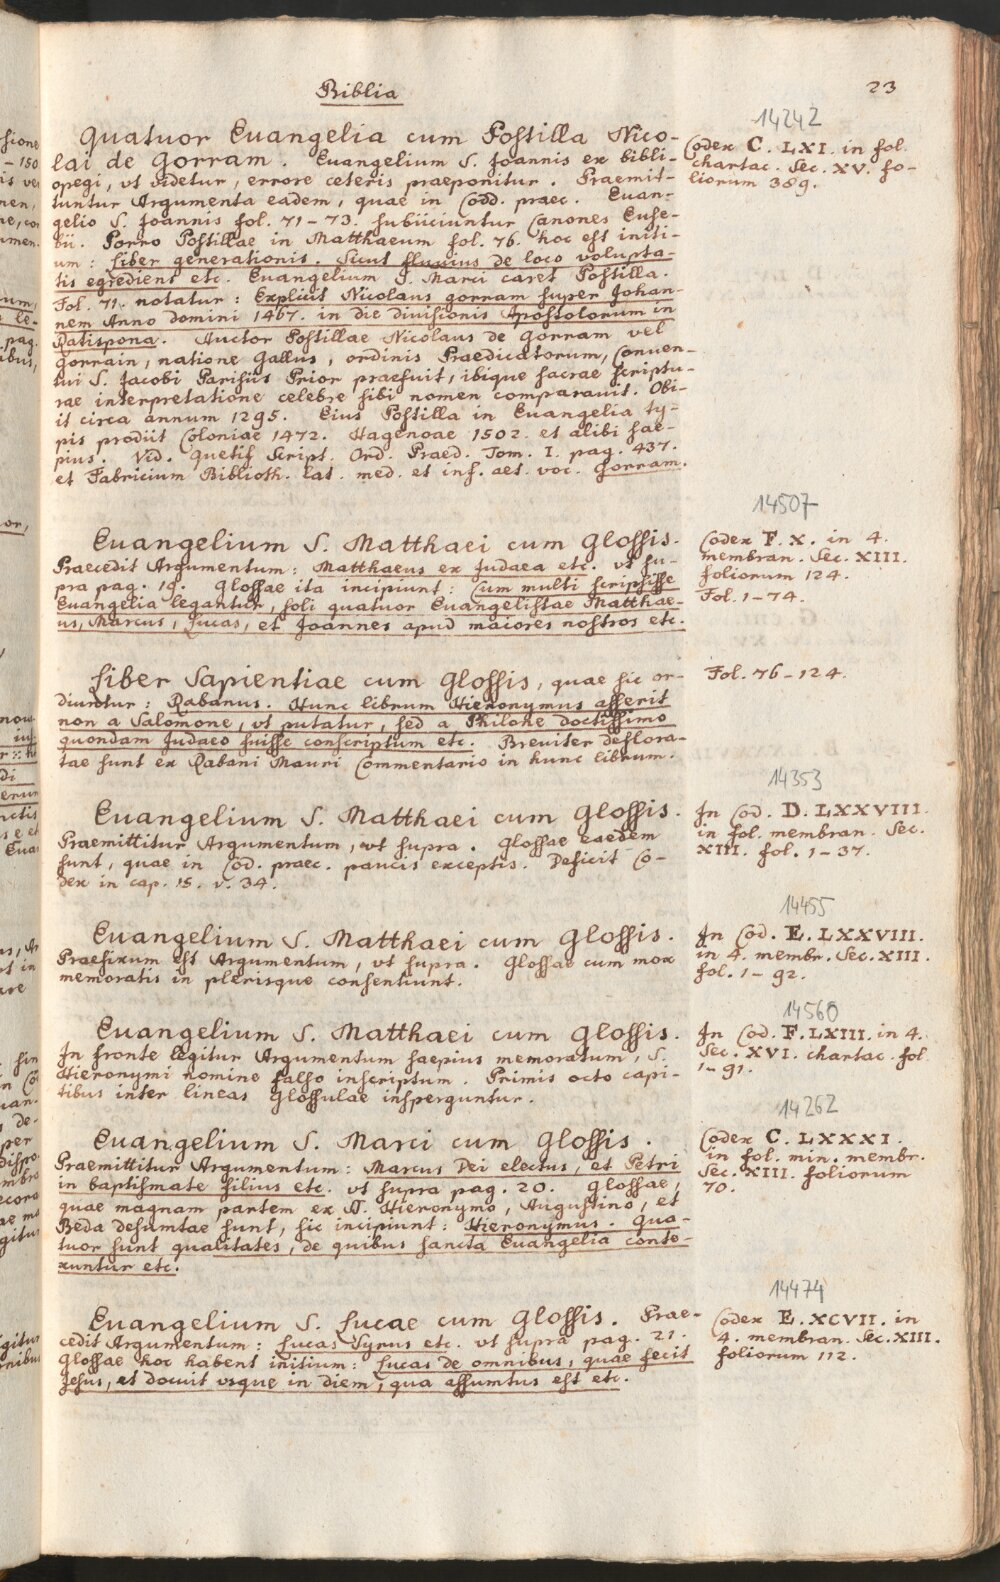 Biblia
23
Quatuor Euangelia cum Postilla Nico-
lai de Gorram. Euangelium S. Joannis ex bibli-
opegi, vt videtur, errore ceteris praeponitur. Praemit-
tuntur Argumenta eadem, quae in Codd. praec. Euan-
gelio S. Joannis fol. 71-73. subiiciuntur Canones Euse-
bii. Porro Postillae in Matthaeum fol. 76. hoc est initi-
um: Liber generationis. Sicut fluuius de loco volupta-
tis egredient etc. Euangelium S. Marci caret Postilla.
Fol. 71. notatur: Explicit Nicolaus gorram super Johan-
nem Anno domini 1467. in die diuisionis Apostolorum in
Ratispona. Auctor Postillae Nicolaus de Gorram vel
Gorrain, natione Gallus, ordinis Praedicatorum, Conuen-
tui S. Jacobi Parisiis Prior praefuit, ibique sacrae scriptu-
rae interpretatione celebre sibi nomen comparauit. Obi-
it circa annum 1295. Eius Postilla in Euangelia ty-
pis prodiit Coloniae 1472. Hagenoae 1502. et alibi sae-
pius. Vid. Quetif Script. Ord. Praed. Tom. I. pag. 437.
et Fabricium Biblioth. Lat. med. et inf. aet. voc. Gorram.
14242
Codex C. LXI. in fol.
chartac. Sec. XV. fo-
liorum 389.
Euangelium S. Matthaei cum Glossis.
Praecedit Argumentum: Matthaeus ex Judaea etc. vt su-
pra pag. 19. Glossae ita incipiunt: Cum multi scripsisse
Euangelia legantur, soli quatuor Euangelistae Matthae-
us, Marcus, Lucas, et Joannes apud maiores nostros etc.
14507
Codex F. X. in 4.
membran. Sec. XIII.
foliorum 124.
Fol. 1-74.
Liber Sapientiae cum Glossis, quae sic or-
diuntur: Rabanus. Hunc librum Hieronymus asserit
non a Salomone, vt putatur, sed a Philone doctissimo
quondam Judaeo fuisse conscriptum etc. Breuiter deflora-
tae sunt ex Rabani Mauri Commentario in hunc librum.
Fol. 76-124.
Euangelium S. Matthaei cum Glossis.
Praemittitur Argumentum, vt supra. Glossae eaedem
sunt, quae in Cod. praec. paucis exceptis. Deficit Co-
dex in cap. 15. v. 34.
14353
In Cod. D. LXXVIII.
in fol. membran. Sec.
XIII. fol. 1-37.
Euangelium S. Matthaei cum Glossis.
Praefixum est Argumentum, vt supra. Glossae cum mox
memoratis in plerisque consentiunt.
14455
In Cod. E. LXXVIII.
in 4. membr. Sec. XIII.
fol. 1-92.
Euangelium S. Matthaei cum Glossis.
In fronte legitur Argumentum saepius memoratum, S.
Hieronymi nomine falso inscriptum. Primis octo capi-
tibus inter lineas Glossulae insperguntur.
14560
In Cod. F. LXIII. in 4.
Sec. XVI. chartac. fol.
1-91.
Euangelium S. Marci cum Glossis.
Praemittitur Argumentum: Marcus Dei electus, et Petri
in baptismate filius etc. vt supra pag. 20. Glossae,
quae magnam partem ex SS. Hieronymo, Augustino, et
Beda desumtae sunt, sic incipiunt: Hieronymus. Qua-
tuor sunt qualitates, de quibus sancta Euangelia conte-
xuntur etc.
14262
Codex C. LXXXI.
in fol. min. membr.
Sec. XIII. foliorum
70.
Euangelium S. Lucae cum Glossis. Prae-
cedit Argumentum: Lucas Syrus etc. vt supra pag. 21.
Glossae hoc habent initium: Lucas de omnibus, quae fecit
Jesus, et docuit vsque in diem, qua assumtus est etc.
14474
Codex E. XCVII. in
4. membran. Sec. XIII.
foliorum 112.